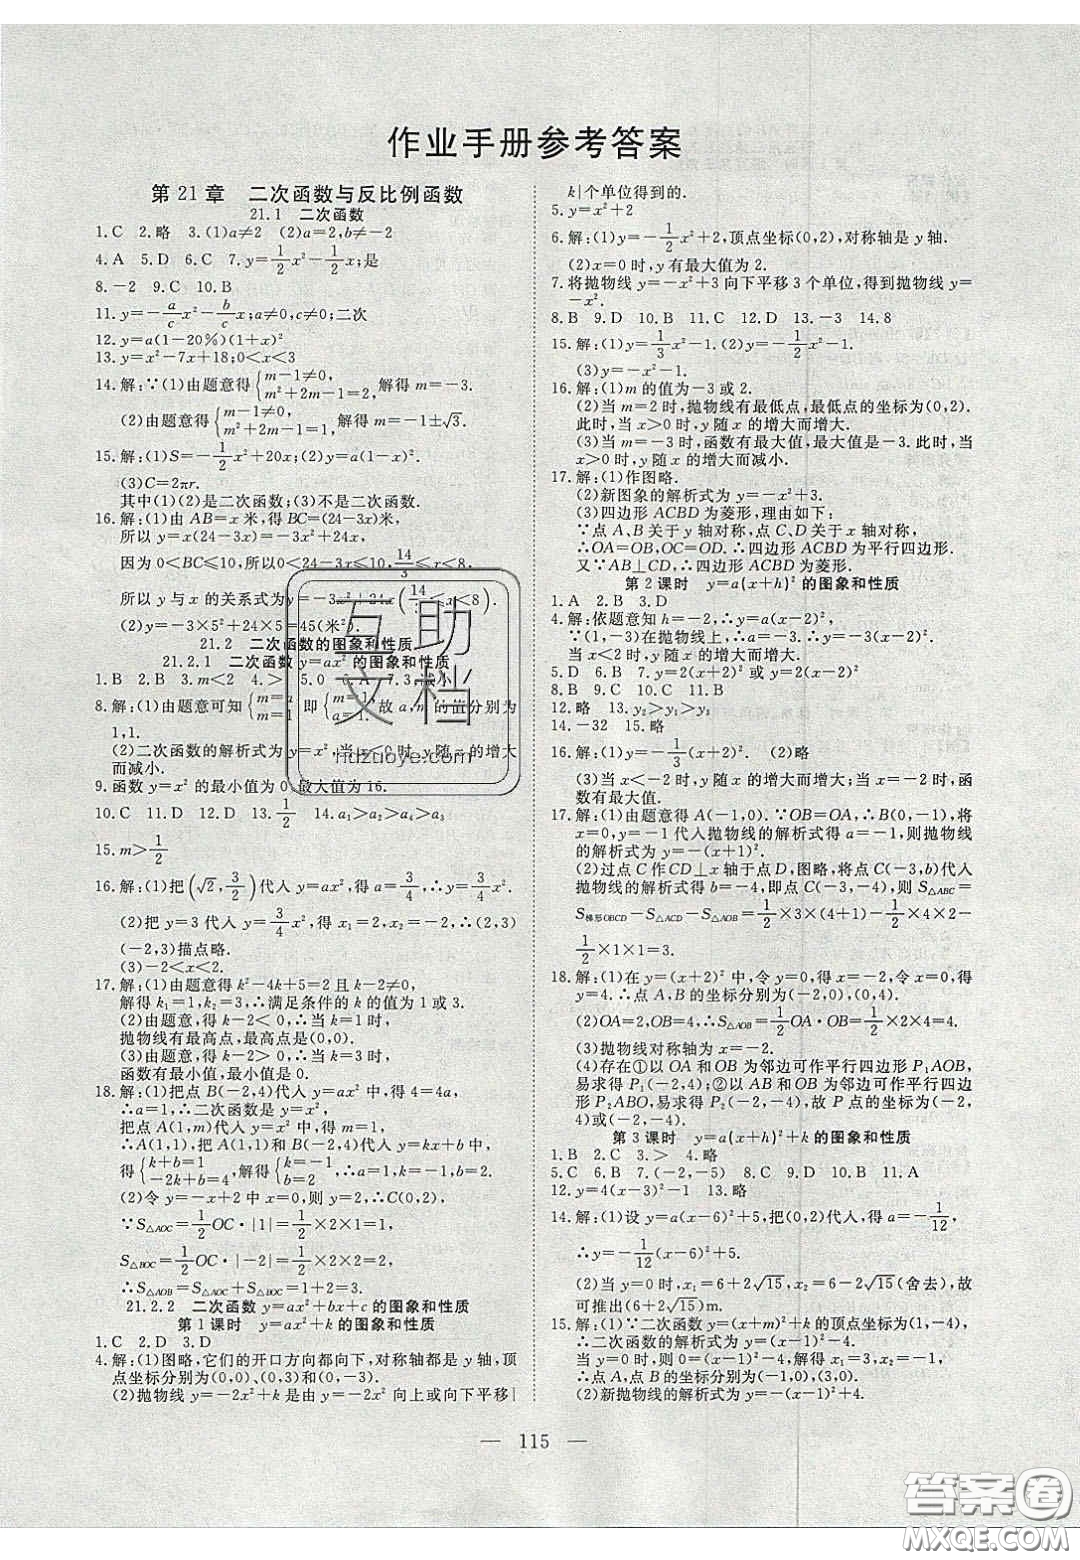 作业手册参考答案
第21章 二次函数与反比例函数
21.1 二次函数
1.C 2.略 3.(1)a≠2 (2)a=2,b≠-2
4.A 5.D 6.C 7.y=1/2x²-1/2x;是
8.-2 9.C 10.B
11.y=-a/cx²-b/cx;a≠0,c≠0;二次
12.y=a(1-20%)(1+x)²
13.y=x²-7x+18;0<x<3
14.解:∵(1)由题意得{m-1≠0, m²+2m-1=2, 解得m=-3.
(2)由题意得{m-1≠0, m²+2m-1=1, 解得m=-1±√3.
15.解:(1)S=-1/2x²+20x;(2)S=πr²;
(3)C=2πr.
其中(1)(2)是二次函数;(3)不是二次函数.
16.解:(1)由AB=x米,得BC=(24-3x)米,
所以y=x(24-3x)=-3x²+24x,
因为0<BC≤10,所以0<24-3x≤10,14/3≤x<8,
所以y与x的关系式为y=-3x²+24x(14/3≤x<8).
(2)y=-3×5²+24×5=45(米²).
21.2 二次函数的图象和性质
21.2.1 二次函数y=ax²的图象和性质
1.B 2.B 3.m<2 4.> 5.0 6.A 7.3,小
8.解:(1)由题意可知{m=a, m=1, 即{m=1, a=1. 故a,m的值分别为
1,1.
(2)二次函数的解析式为y=x²,当x<0时,y随x的增大
而减小.
9.函数y=x²的最小值为0,最大值为16.
10.C 11.D 12.D 13.1/2 14.a₁>a₂>a₄>a₃
15.m>1/2
16.解:(1)把(√2,3/2)代入y=ax²,得a=3/4,∴y=3/4x².
(2)把y=3代入y=3/4x²,得x₁=2,x₂=-2,∴(2,3)
(-2,3)描点略.
(3)-2<x<2.
17.解:(1)由题意得k²-4k+5=2且k-2≠0,
解得k₁=1,k₂=3,∴满足条件的k的值为1或3.
(2)由题意,得k-2<0,∴当k=1时,
抛物线有最高点,最高点是(0,0).
(3)由题意,得k-2>0,∴当k=3时,
函数有最小值,最小值是0.
18.解:(1)把点B(-2,4)代入y=ax²中,得4=4a,
∴a=1,∴二次函数是y=x²,
把点A(1,m)代入y=x²中,得m=1,
∴A(1,1),把A(1,1)和B(-2,4)代入y=kx+b中,
得{k+b=1, -2k+b=4, 解得{k=-1, b=2. ∴一次函数是y=-x+2.
(2)令y=-x+2中x=0,则y=2,∴C(0,2),
∵S△AOC=1/2OC·|1|=1/2×2×1=1,
S△BOC=1/2OC·|-2|=1/2×2×2=2,
∴S△AOB=S△AOC+S△BOC=1+2=3.
21.2.2 二次函数y=ax²+bx+c的图象和性质
第1课时 y=ax²+k的图象和性质
1.C 2.D 3.D
4.解:(1)图略,它们的开口方向都向下,对称轴都是y轴,顶
点坐标分别为(0,0)、(0,3)和(0,-3).
(2)抛物线y=-2x²+k是由y=-2x²向上或向下平移|
k|个单位得到的.
5.y=x²+2
6.解:(1)y=-1/2x²+2,顶点坐标(0,2),对称轴是y轴.
(2)x=0时,y有最大值为2.
7.将抛物线y=-x²+3向下平移3个单位,得到抛物线y=
-x².
8.B 9.D 10.B 11.B 12.D 13.-3 14.8
15.解:(1)y=1/3x²-1.(2)y=-1/2x²-1.
(3)y=-x²-1.
16.解:(1)m的值为-3或2.
(2)当m=2时,抛物线有最低点,最低点的坐标为(0,2).
此时,当x>0时,y随x的增大而增大.
(3)当m=-3时,函数有最大值,最大值是-3.此时,当
x>0时,y随x的增大而减小.
17.解:(1)作图略.
(2)新图象的解析式为y=-x²+3.
(3)四边形ACBD为菱形,理由如下:
∵点A、B关于y轴对称,点C、D关于x轴对称,
∴OA=OB,OC=OD.∴四边形ACBD为平行四边形.
又∵AB⊥CD,∴四边形ACBD为菱形.
第2课时 y=a(x+h)²的图象和性质
1.A 2.B 3.D
4.解:依题意知h=-2,∴y=a(x-2)².
∵(1,-3)在抛物线上,∴a=-3.∴y=-3(x-2)².
当x<2时,y随x的增大而增大.
5.D 6.B 7.y=2(x-2)²
8.B 9.B 10.C 11.B
12.略 13.y₂>y₁>y₃
14.-32 15.略
16.解:(1)y=-1/3(x+2)². (2)略
(3)当x<-2时,y随x的增大而增大;当x=-2时,函
数有最大值.
17.解:(1)由题意得A(-1,0).∵OB=OA,∴B(0,-1),将
x=0,y=-1代入抛物线的解析式得a=-1,则抛物线
的解析式为y=-(x+1)².
(2)过点C作CD⊥x轴于点D,图略,将点C(-3,b)代入
抛物线的解析式得b=-4,即点C(-3,-4),则S△ABC=
S梯形OBCD-S△ACD-S△AOB=1/2×3×(4+1)-1/2×4×2-
1/2×1×1=3.
18.解:(1)在y=(x+2)²中,令y=0,得x=-2,令x=0,得
y=4.∴点A,B的坐标分别为(-2,0),(0,4).
(2)OA=2,OB=4,∴S△AOB=1/2OA·OB=1/2×2×4=4.
(3)抛物线对称轴为x=-2.
(4)存在①以OA和OB为邻边可作平行四边形P₁AOB,
易求得P₁(-2,4);②以AB和OB为邻边可作平行四边形
P₂ABO,易求得P₂(-2,-4),故P点的坐标为(-2,
4)或(-2,-4).
第3课时 y=a(x+h)²+k的图象和性质
1.B 2.C 3.> 4.略
5.C 6.B 7.(-2,-5) 8.C 9.D 10.B 11.A
12.y=4(x-3)²-1 13.略
14.解:(1)设y=a(x-6)²+5,把(0,2)代入,得a=-1/12,
∴y=-1/12(x-6)²+5.
(2)当y=0时,x₁=6+2√15,x₂=6-2√15(舍去),故
可推出(6+2√15)m.
15.解:(1)∵二次函数y=(x+m)²+k的顶点坐标为(1,-4),
∴二次函数的解析式为y=(x-1)²-4.
当y=0时,则0=(x-1)²-4.∴x₁=3,x₂=-1.
∴点A,点B的坐标分别为(-1,0),(3,0).
(2)新抛物线的解析式为y=-(x-1)²+4.
115
互助
文档
hdzuoye.com
答案圈
MXQE.COM